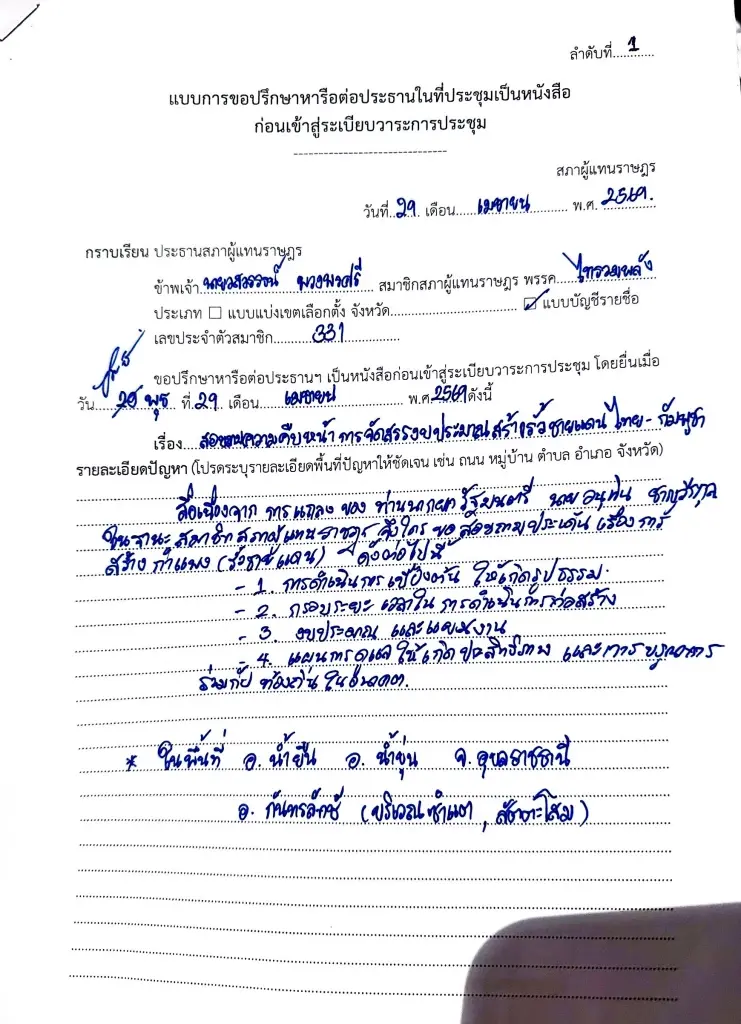 ลำดับที่....1....
แบบการขอปรึกษาหารือต่อประธานในที่ประชุมเป็นหนังสือ
ก่อนเข้าสู่ระเบียบวาระการประชุม
-------------------------------
สภาผู้แทนราษฎร
วันที่ 29 เดือน เมษายน พ.ศ. 2569.
กราบเรียน ประธานสภาผู้แทนราษฎร
ข้าพเจ้า สมาชิกสภาผู้แทนราษฎร พรรค ไทรวมพลัง
ประเภท ☐ แบบแบ่งเขตเลือกตั้ง จังหวัด.......................... ☑ แบบบัญชีรายชื่อ
เลขประจำตัวสมาชิก 331
ขอปรึกษาหารือต่อประธานฯ เป็นหนังสือก่อนเข้าสู่ระเบียบวาระการประชุม โดยยื่นเมื่อ
วัน พุธ ที่ 29 เดือน เมษายน พ.ศ. 2569 ดังนี้
เรื่อง สอบถามความคืบหน้า การจัดสรรงบประมาณสร้างรั้วชายแดน ไทย - กัมพูชา
รายละเอียดปัญหา (โปรดระบุรายละเอียดพื้นที่ปัญหาให้ชัดเจน เช่น ถนน หมู่บ้าน ตำบล อำเภอ จังหวัด)
สืบเนื่องจาก การแถลง ของ ท่านนายกรัฐมนตรี นาย อนุทิน ชาญวีรกูล
ในฐานะ สมาชิกสภาผู้แทนราษฎร จึงใคร่ ขอ สอบถามประเด็น เรื่องการ
สร้าง กำแพง (รั้วชายแดน) ดังต่อไปนี้
- 1. การดำเนินการเบื้องต้น ให้เกิดรูปธรรม.
- 2. กรอบระยะ เวลาใน การดำเนินการก่อสร้าง
- 3. งบประมาณ และแผนงาน
- 4. แผนการดูแล ให้เกิดประสิทธิภาพ และการบูรณาการ
ร่วมกับ ท้องถิ่น ในอนาคต.
* ในพื้นที่ อ. น้ำยืน อ. น้ำขุ่น จ. อุบลราชธานี
อ. กันทรลักษ์ (บริเวณซำแต, สัตตะโสม)